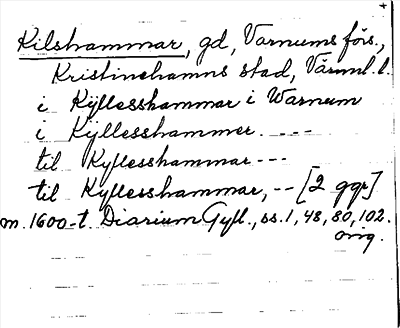 Kilshammar, gd, Varnums förs.,
Kristinehamns stad, Värml. l.
i Kÿllesshammar i Warnum
i Kÿllesshammer. ----
til Kyllesshammar ---
til Kyllesshammar, -- [2 ggr]
m. 1600-t. Diarium Gyll., ss. 1, 48, 80, 102.
orig.